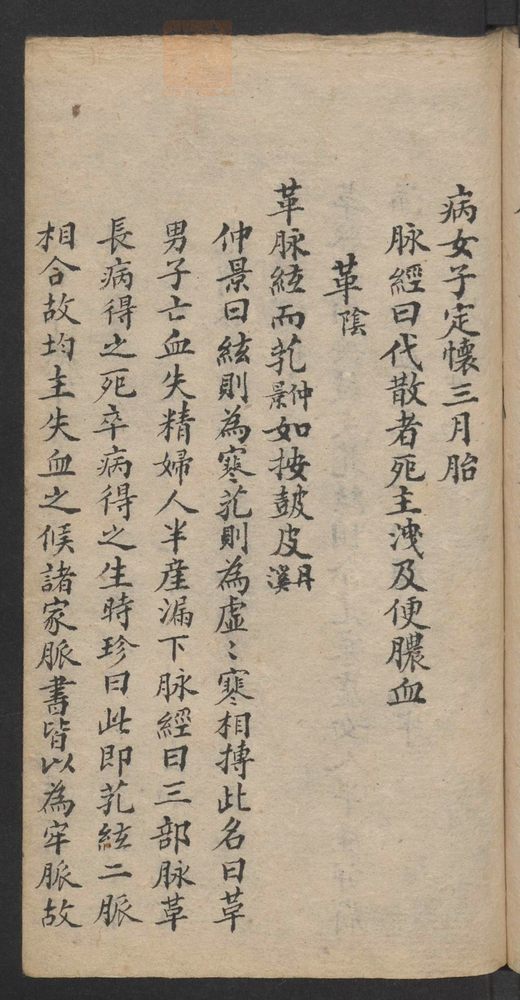 病女子定懷三月胎
脉經曰代散者死主洩及便膿血
革陰
革脉絃而芤仲景如按皷皮丹溪
仲景曰絃則為寒芤則為虛〻寒相摶此名曰革
男子亡血失精婦人半産漏下脉經曰三部脉革
長病得之死卒病得之生時珍曰此即芤絃二脈
相合故均主失血之候諸家脈書皆以為牢脈故